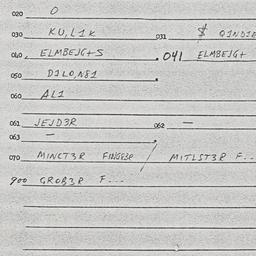 020 O
030 KU,L1K 031 $ Q1ND1E
040, ELMBEJG+S .041 ELMBEJG+
050 D1LO,N81
060 AL1
061 JEJD3R 062 —
063 —
070 MINCT3R FINGE3R / MITLST3R F...
900 GROB3R F...